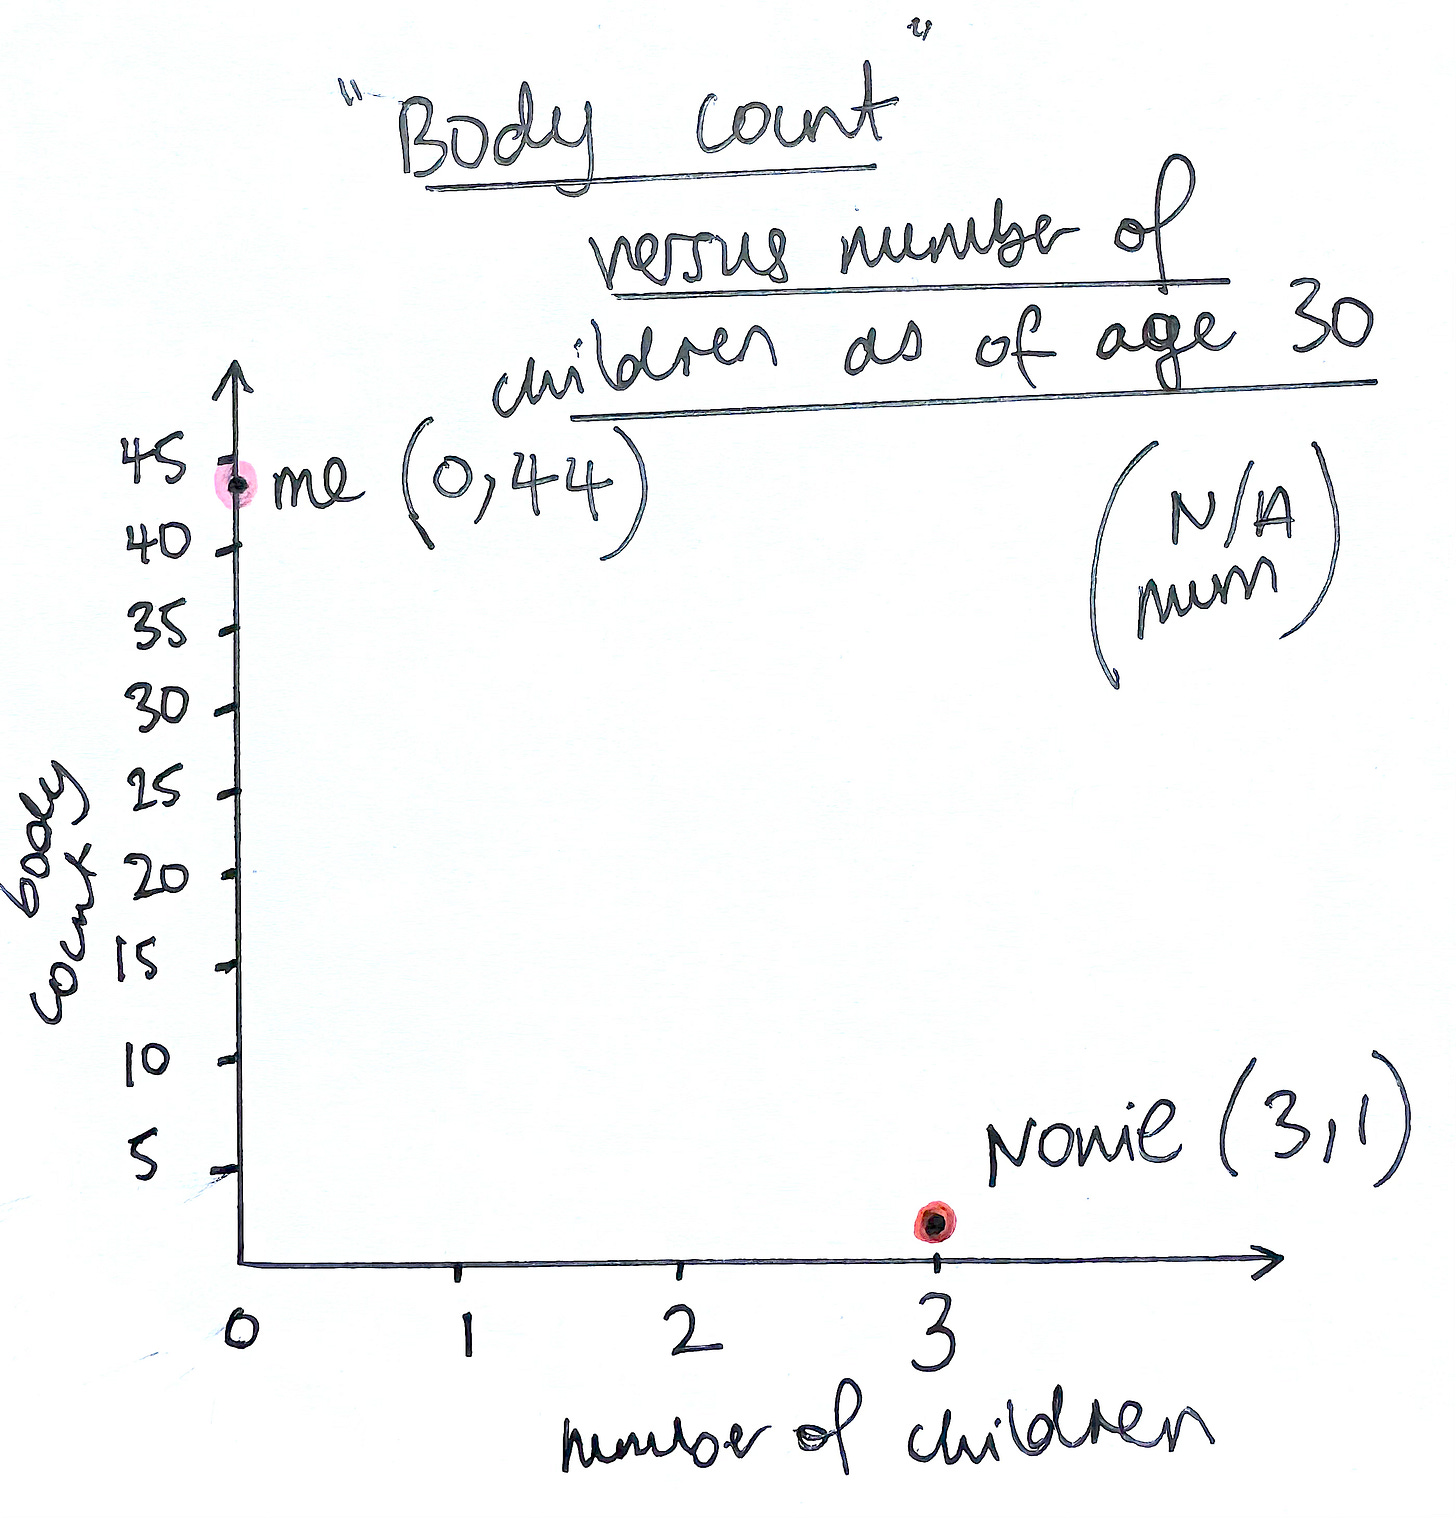 "Body count"
versus number of
children as of age 30
45
me (0,44)
(N/A
mum)
40
35
30
25
20
15
10
5
body
count
Nonie (3,1)
0 1 2 3
number of children